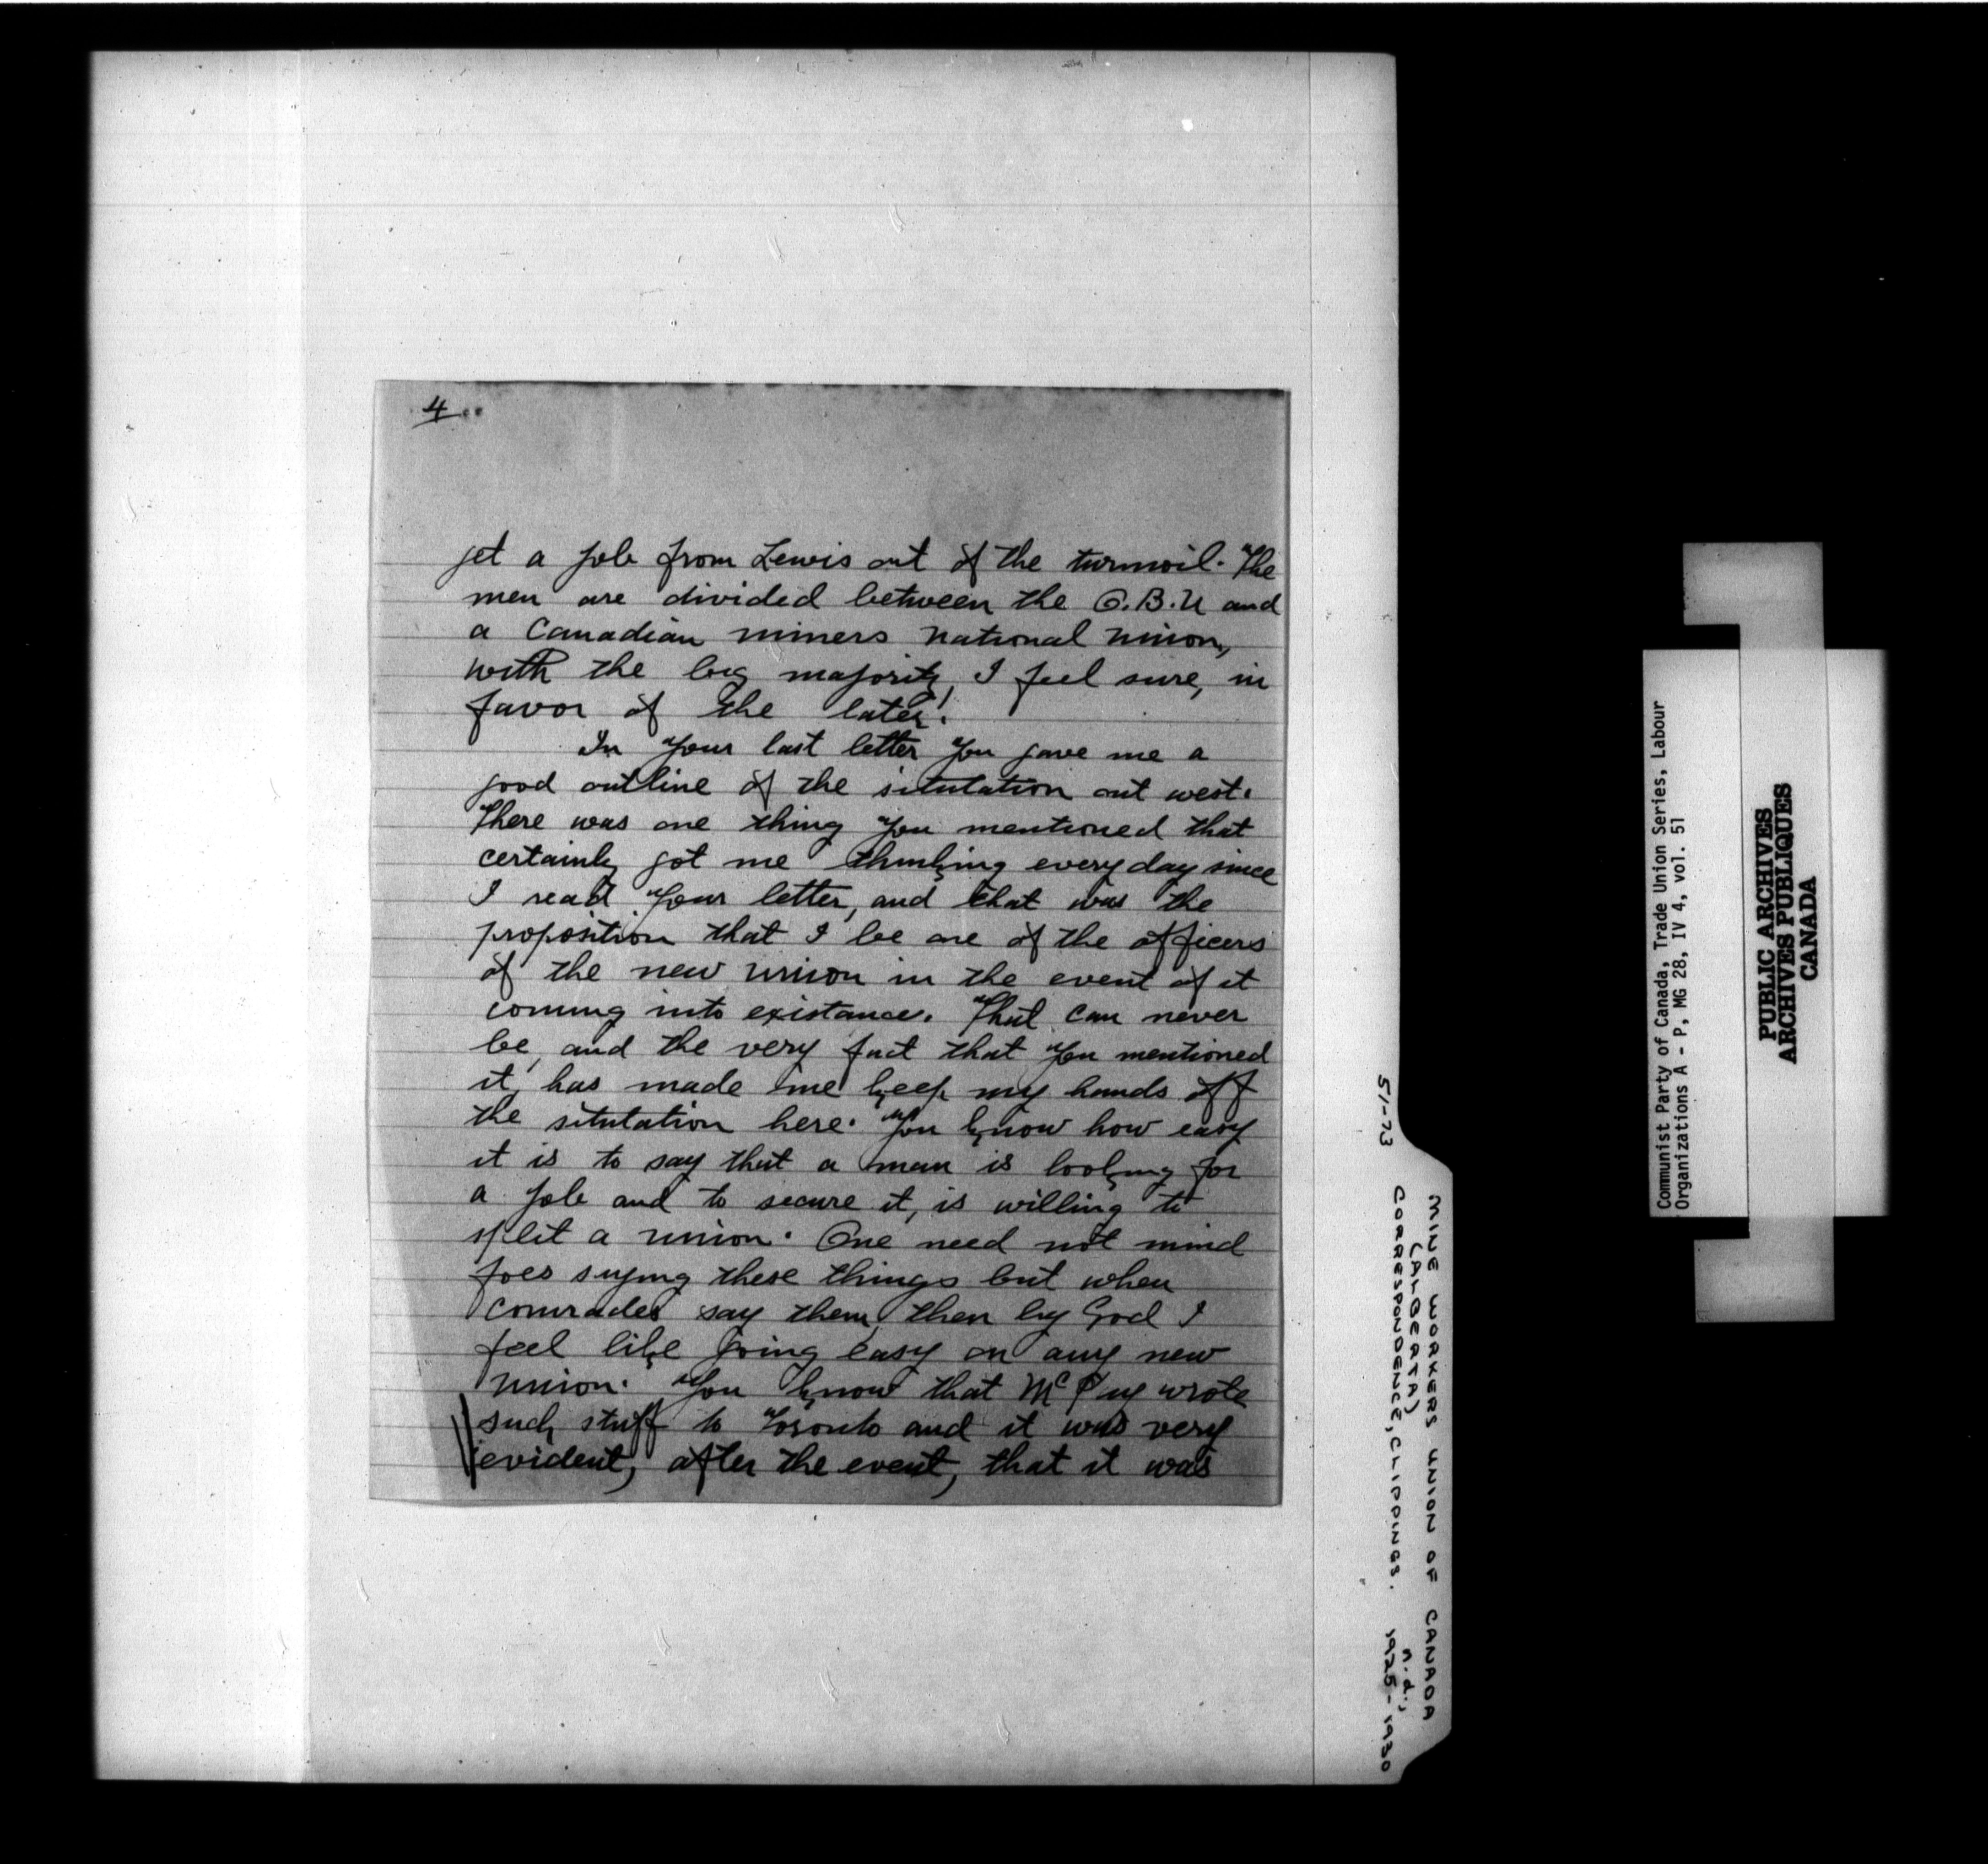 4
get a job from Lewis out of the turmoil. The
men are divided between the O.B.U and
a Canadian miners national union,
with the big majority, I feel sure, in
favor of the later.
In your last letter you gave me a
good outline of the situtation out west.
There was one thing you mentioned that
certainly got me thinking every day since
I read your letter, and that was the
proposition that I be one of the officers
of the new union in the event of it
coming into existance. That can never
be, and the very fact that you mentioned
it, has made me keep my hands off
the situtation here. You know how easy
it is to say that a man is looking for
a job and to secure it, is willing to
split a union. One need not mind
foes saying these things but when
comrades say them, then by God I
feel like going easy on any new
union. You know that wrote
such stuff to Toronto and it was very
evident, after the event, that it was
51-73
MINE WORKERS UNION OF CANADA
(ALBERTA) n.d.,
CORRESPONDENCE, CLIPPINGS. 1925-1930
Communist Party of Canada, Trade Union Series, Labour
Organizations A - P, MG 28, IV 4, vol. 51
PUBLIC ARCHIVES
ARCHIVES PUBLIQUES
CANADA